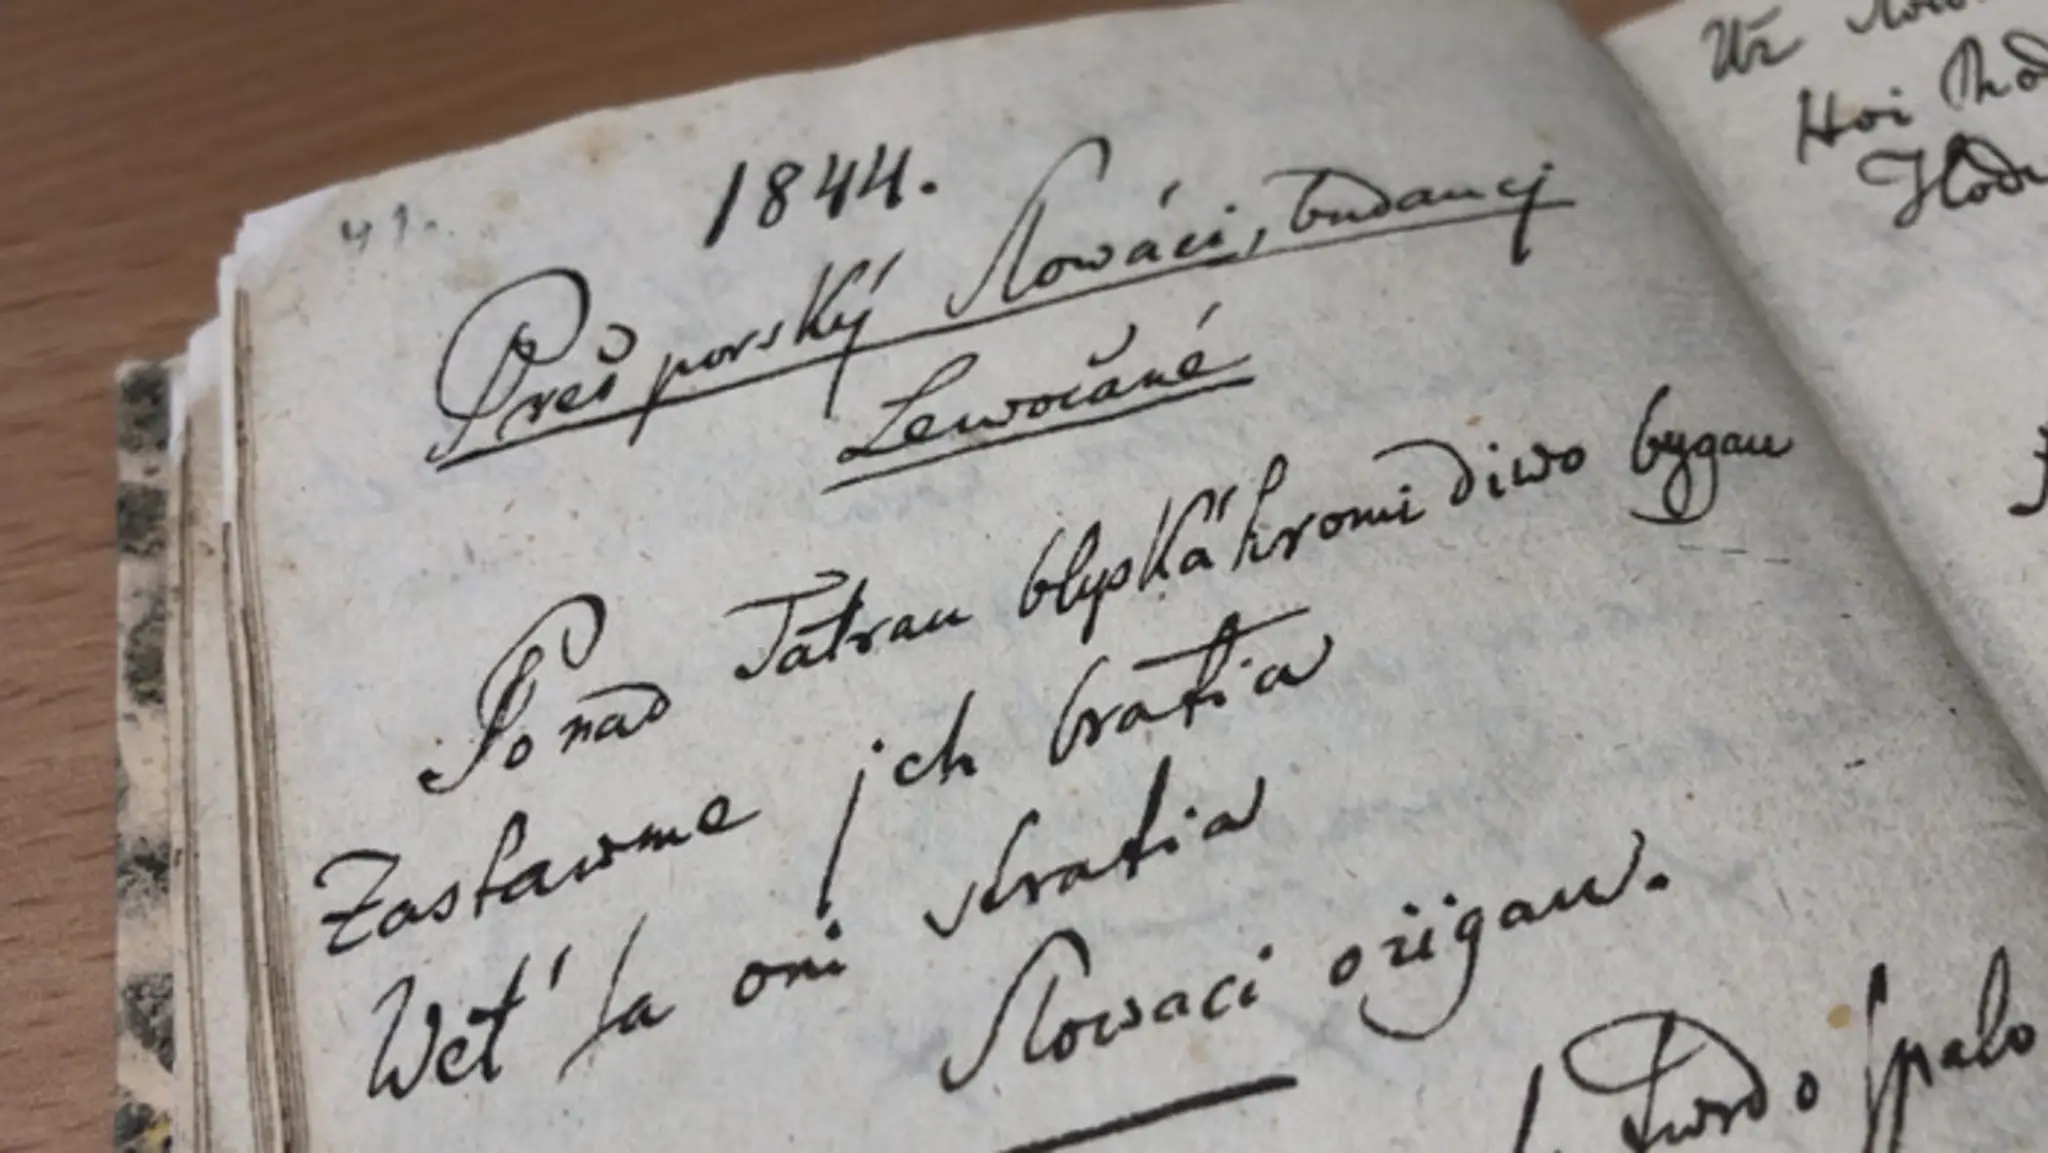 41.
1844.
Prešporský Slowáci, buďaucj
Lewočané
Ponad Tatrau blýska hromi diwo bygau
Zastawme jch bratia
Weť sa oni stratia
Slowaci ožigau.
Twrdo spalo
Už
Hoi